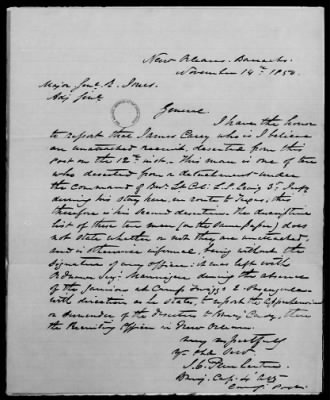 New Orleans Barracks.
November 14th 1850.
Major Genl R. Jones.
Adj Genl
General
I have the honor
to report that James Carey who is I believe
an unattached recruit, deserted from this
post on the 12th inst. This man is one of ten
who deserted from a detachment under
the command of Bvt Lt Col
during his stay here, en route to Texas, this
therefore is his second desertion. The descriptive
list of these ten men (on the same paper) does
not state whether or not they are unattached,
and is otherwise informal, being without the
signature of any officer. It was left with
during the absence
of the Garrison at Camp
with direction as he states, to report the apprehension
or surrender of the deserters to then
the Recruiting Officer in New Orleans.
Very respectfully
Yr Obt Servt
J. C. Pemberton